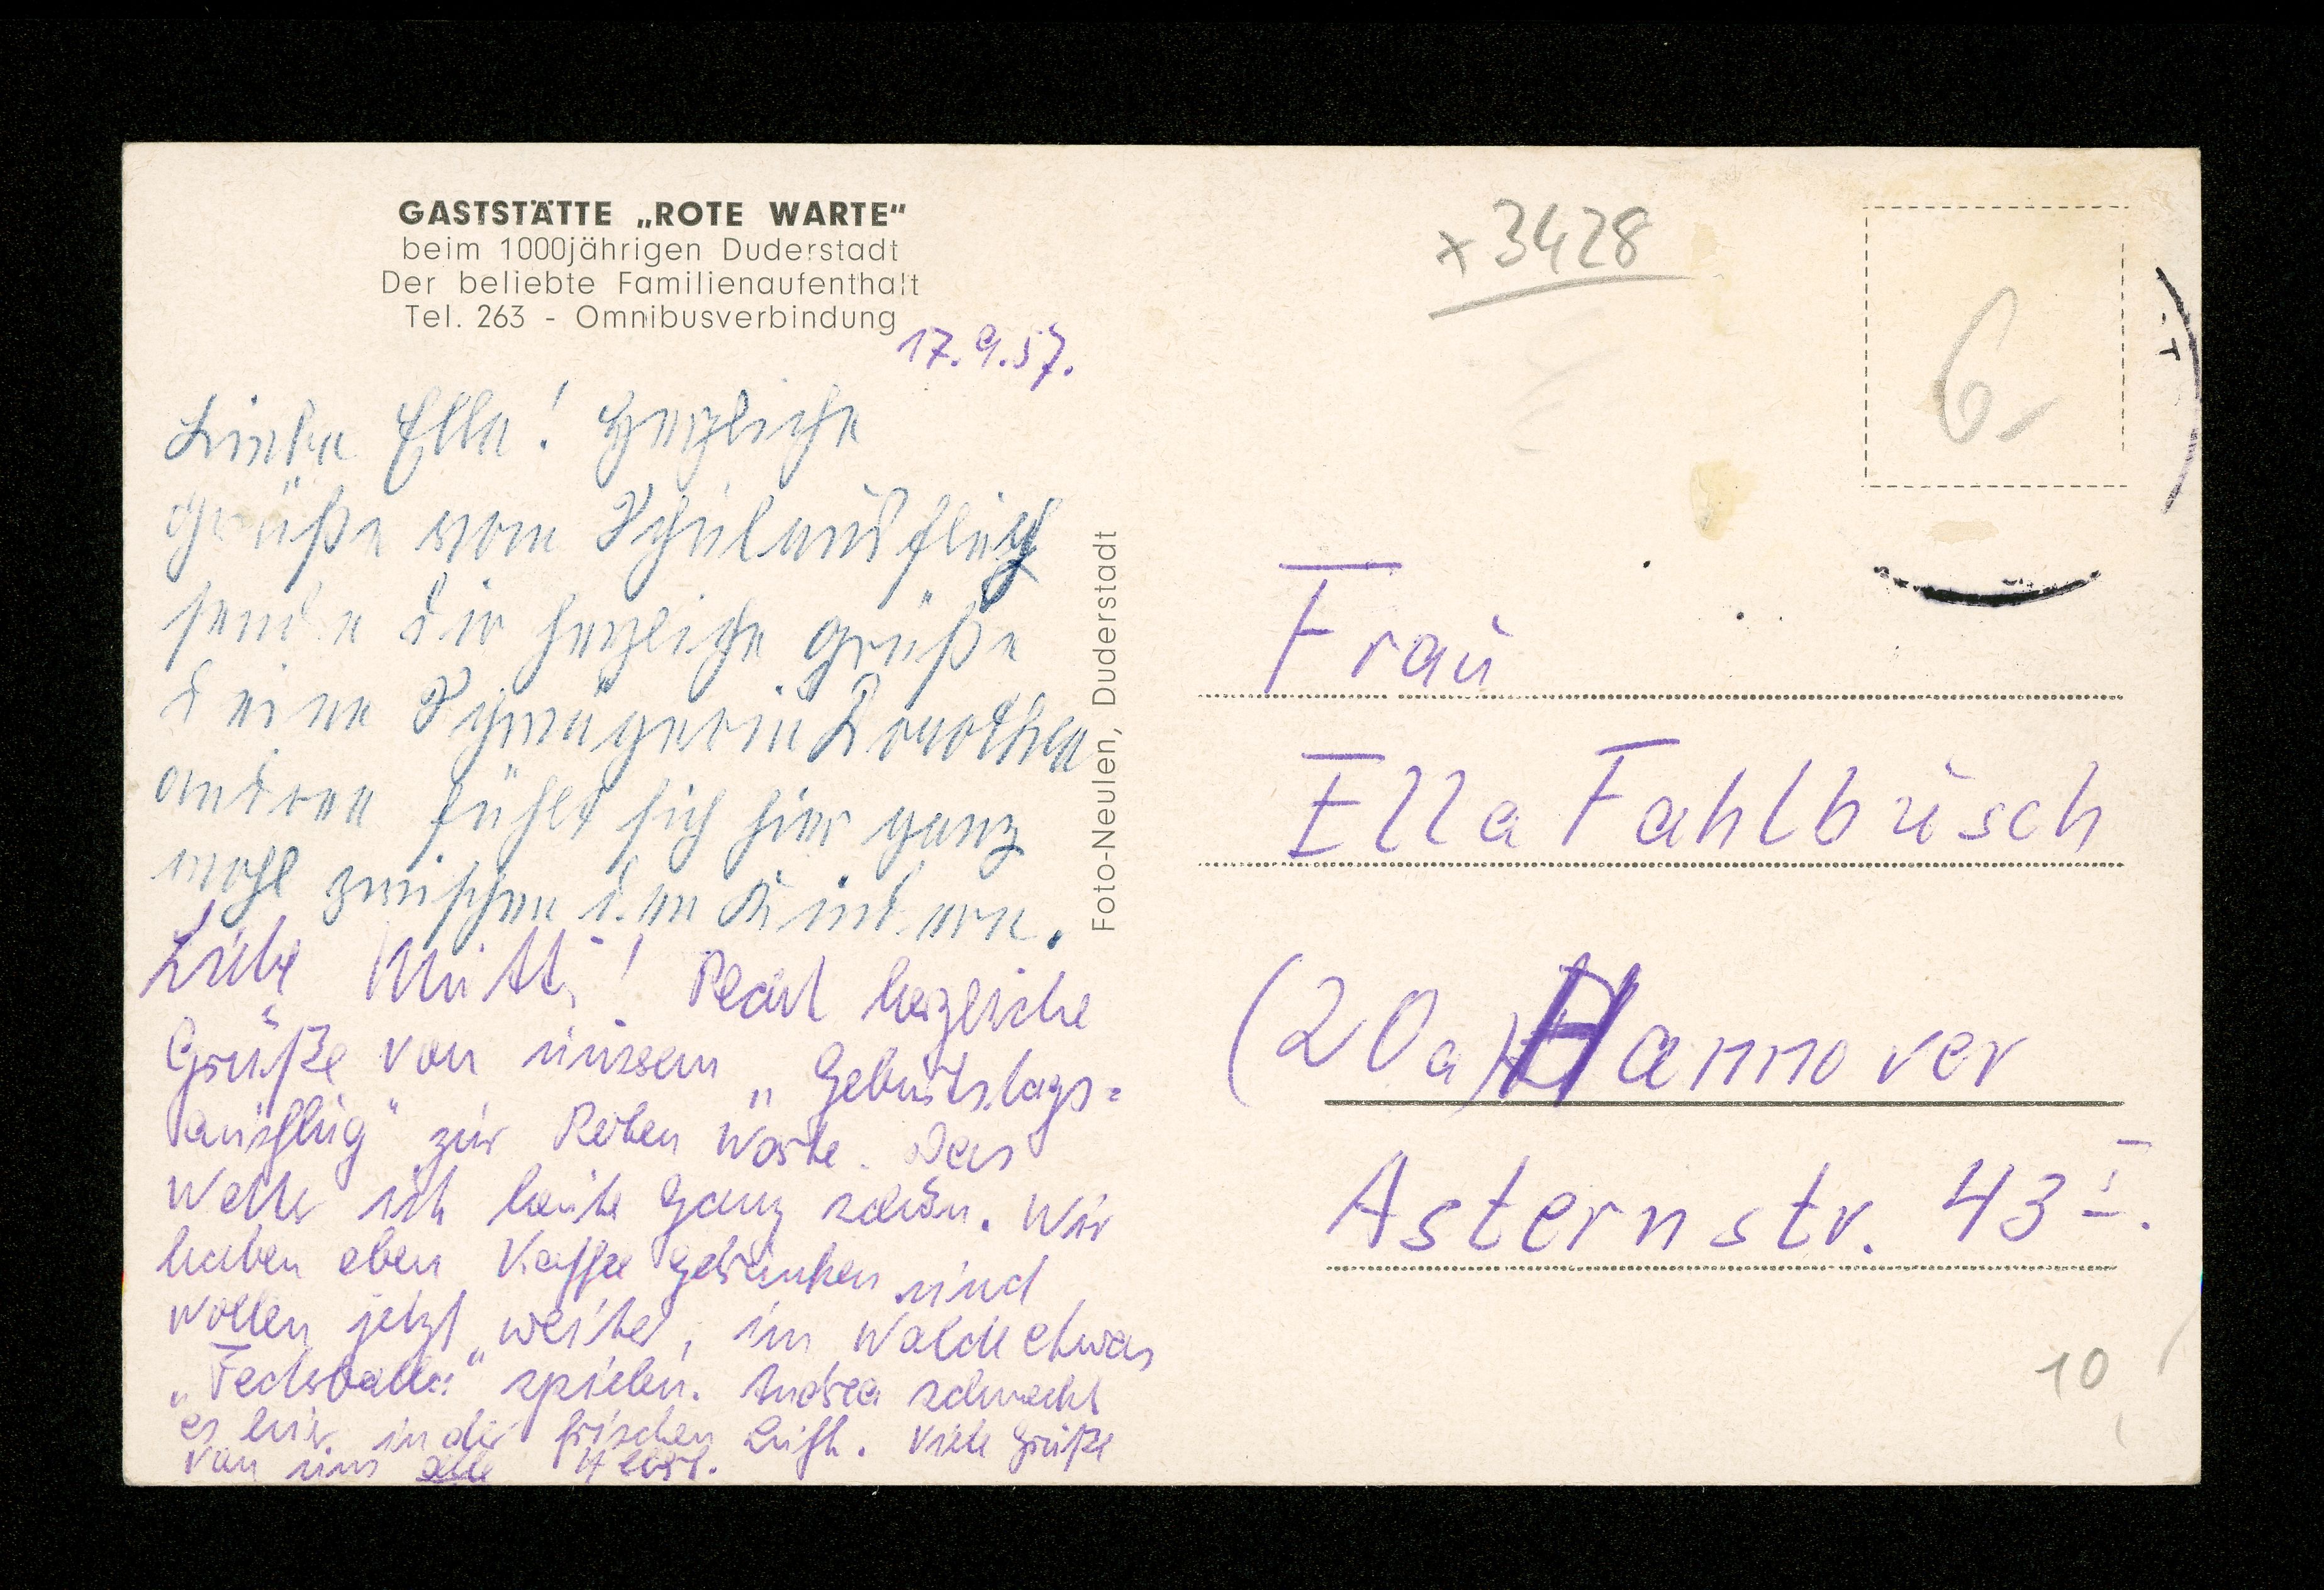 GASTSTÄTTE „ROTE WARTE“
beim 1000jährigen Duderstadt
Der beliebte Familienaufenthalt
Tel. 263 - Omnibusverbindung
17.9.57.
Liebe Ella! Herzliche
Grüße vom Schulausflug
sende dir herzliche Grüße
deine Schwägerin Dorothea
andrea fühlt sich hier ganz
wohl zwischen den Kindern.
Liebe Mutti! Recht herzliche
Grüße von unserm „Geburtstags=
ausflug“ zur Roten Warte. Das
Wetter ist heute ganz schön. Wir
haben eben Kaffee getrunken und
wollen jetzt weiter, im Walde etwas
„ spielen. Andrea schmeckt
es hier in der frischen Luft. Viele Grüße
von uns alle
Foto-Neulen, Duderstadt
x 3428
6,-
Frau
Ella Fahlbusch
(20a) Hannover
Asternstr. 43 I.
10